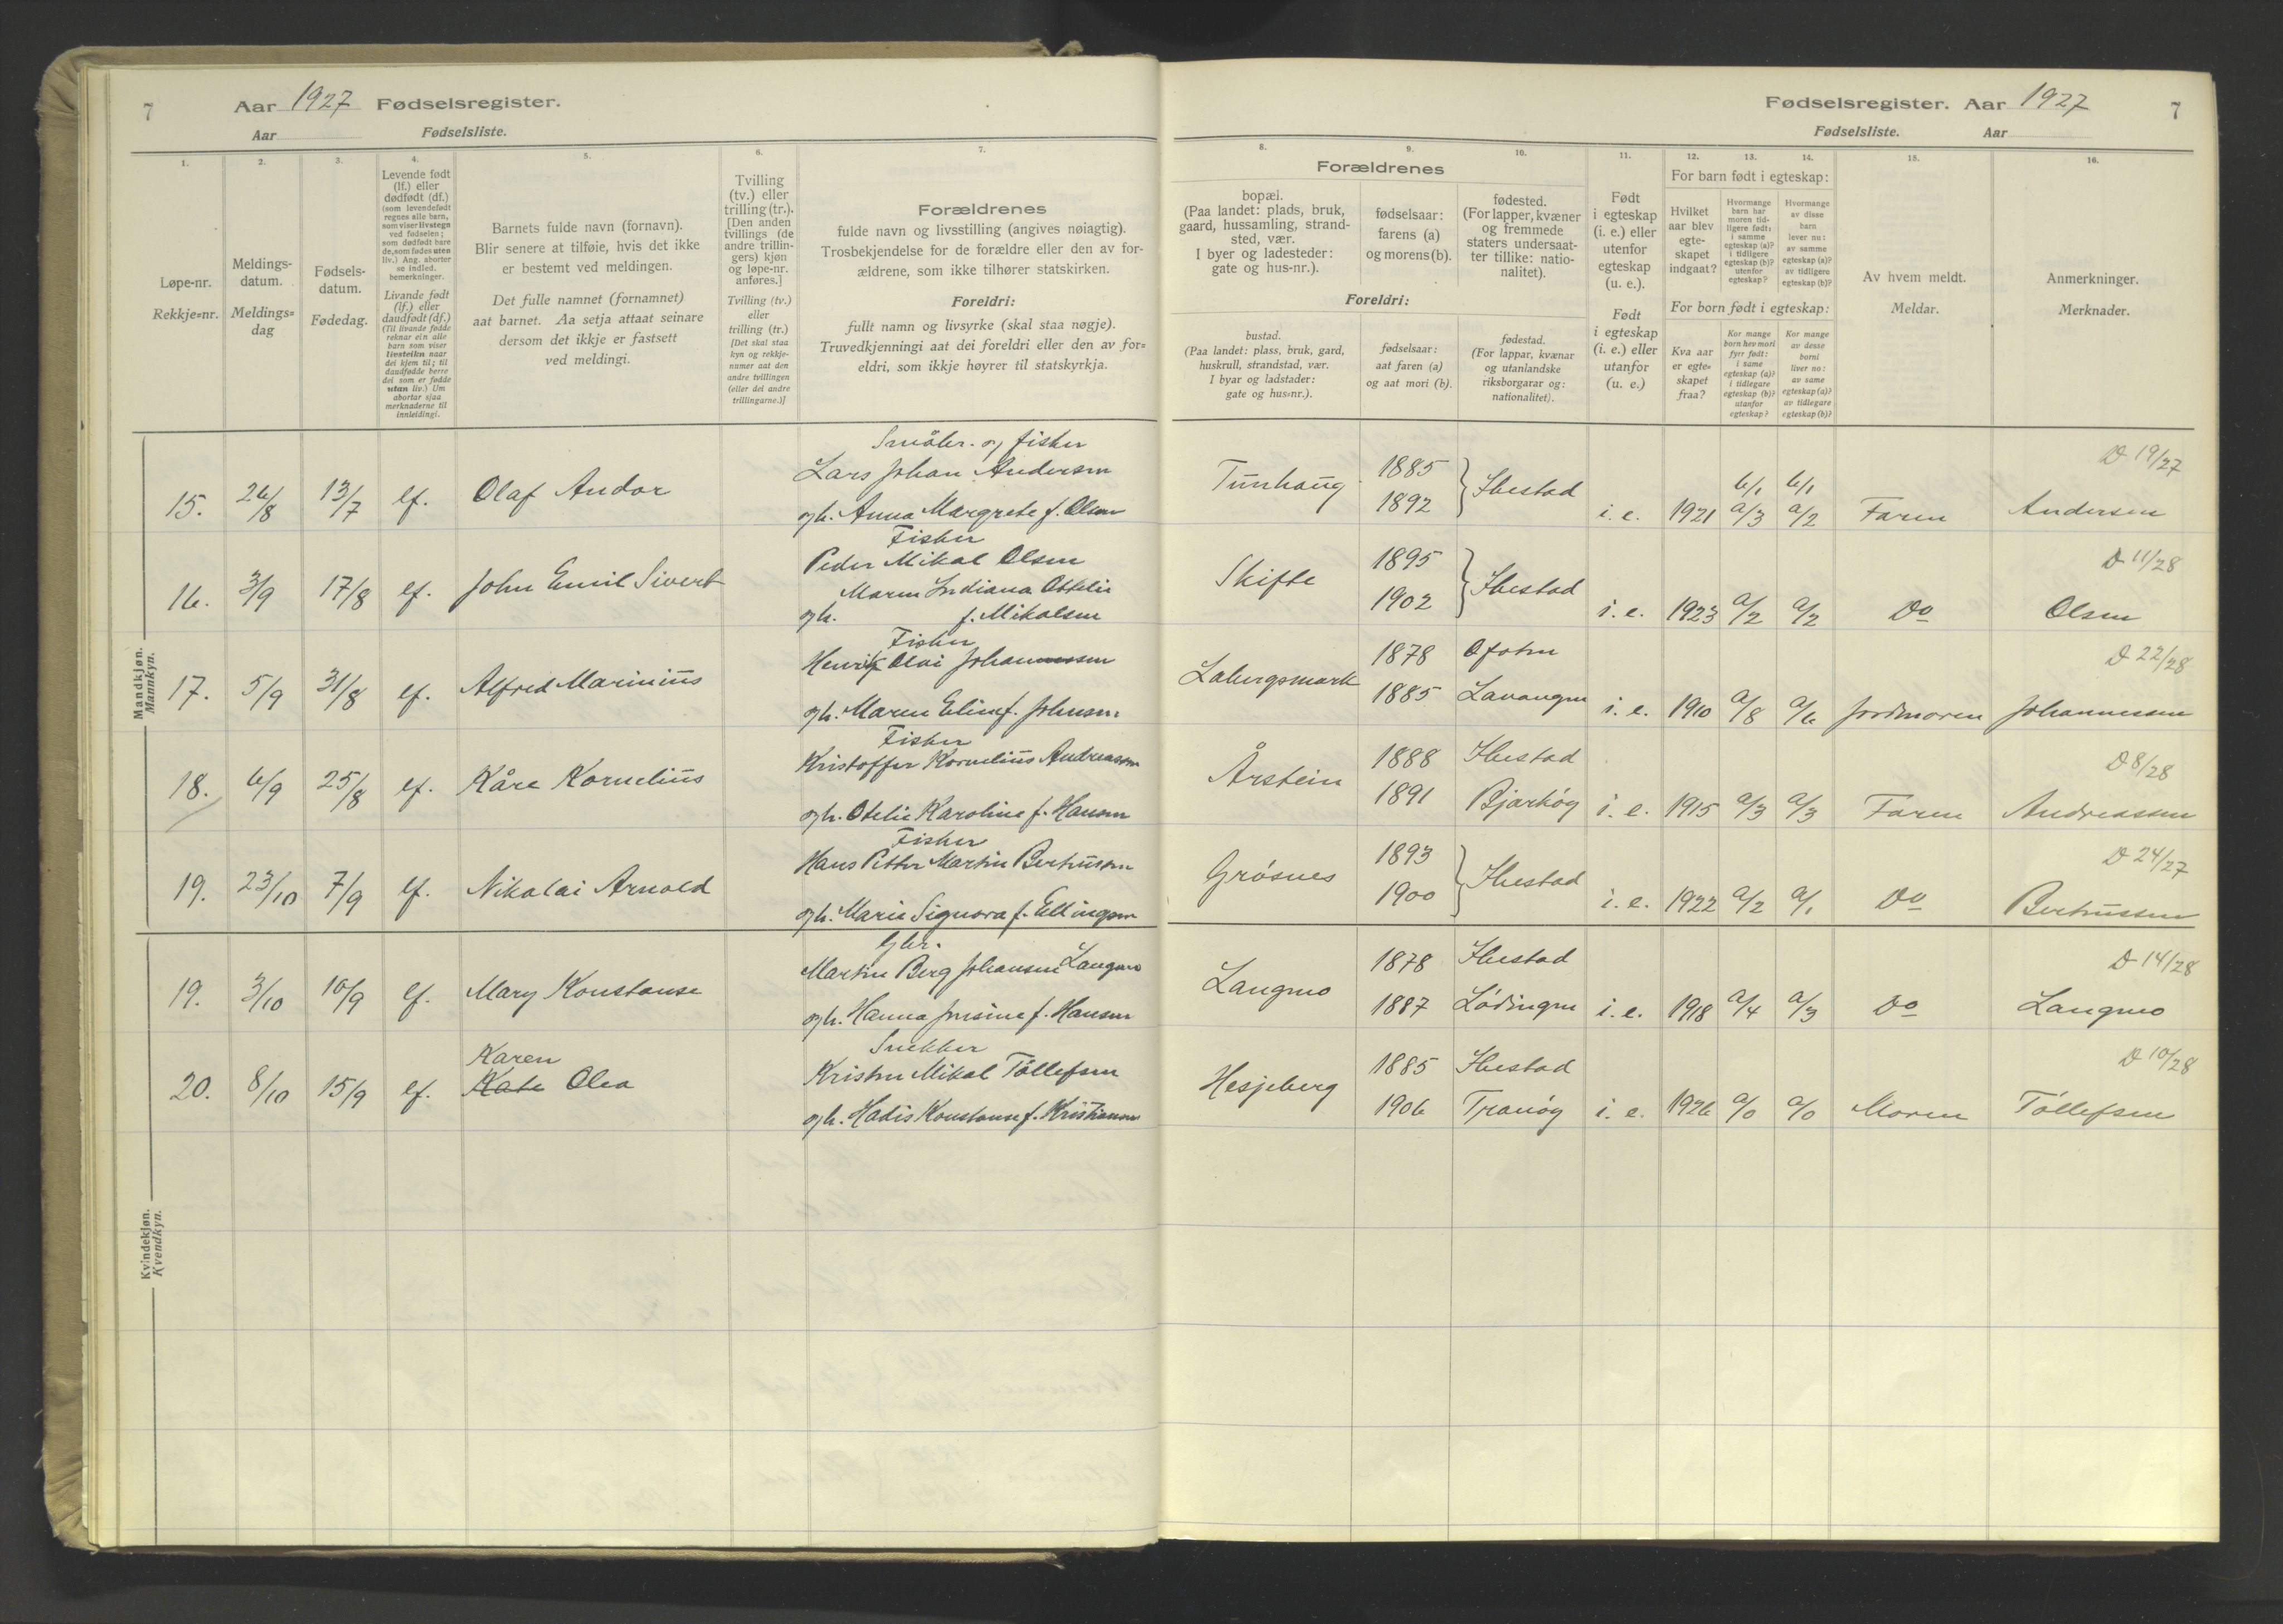 7 Aar 1927 Fødselsregister.
Aar Fødselsliste.
1. 2. 3. 4. 5. 6. 7.
Løpe-nr.
Rekkje=nr.
Meldings-
datum.
Meldings=
dag
Fødsels-
datum.
Fødedag.
Levende født
(lf.) eller
dødfødt (df.)
(som levendefødt
regnes alle barn,
som viser livstegn
ved fødselen;
som dødfødt bare
de, som fødes uten
liv.) Ang. aborter
se indled.
bemerkninger.
Livande født
(lf.) eller
daudfødt (df.)
(Til livande fødde
reknar ein alle
barn som viser
livsteikn naar
dei kjem til; til
daudfødde berre
dei som er fødde
utan liv.) Um
abortar sjaa
merknaderne til
innleidingi.
Barnets fulde navn (fornavn).
Blir senere at tilføie, hvis det ikke
er bestemt ved meldingen.
Det fulle namnet (fornamnet)
aat barnet. Aa setja attaat seinare
dersom det ikkje er fastsett
ved meldingi.
Tvilling
(tv.) eller
trilling (tr.).
[Den anden
tvillings (de
andre trillin-
gers) kjøn
og løpe-nr.
anføres.]
Tvilling (tv.)
eller
trilling (tr.)
[Det skal staa
kyn og rekkje-
numer aat den
andre tvillingen
(eller dei andre
trillingarne.)]
Forældrenes
fulde navn og livsstilling (angives nøiagtig).
Trosbekjendelse for de forældre eller den av for-
ældrene, som ikke tilhører statskirken.
Foreldri:
fullt namn og livsyrke (skal staa nøgje).
Truvedkjenningi aat dei foreldri eller den av for=
eldri, som ikkje høyrer til statskyrkja.
Mandkjøn.
Mannkyn.
Småbr. og fisker
15. 26/8 13/7 lf. Olaf Andor Lars Johan Andersen
og h. Anna Margrete f. Olsen
Fisker
16. 3/9 17/8 lf. John Emil Sivert Peder Mikal Olsen
Maren Indiana Ottelie
og h. f. Mikalsen
Fisker
17. 5/9 31/8 lf. Alfred Marinius Henrik Olai Johannessen
og h. Maren Eline f. Johnsen
Fisker
18. 6/9 25/8 lf. Kåre Kornelius Kristoffer Kornelius Andreassen
og h. Otelie Karoline f. Hansen
Fisker
19. 23/10 7/9 lf. Nikolai Arnold Hans Petter Martin Bertheussen
og h. Marie Signora f. Ellingsen
Kvindekjøn.
Kvendkyn.
Gbr.
19. 3/10 10/9 lf. Mary Konstanse Martin Berg Johansen Langmo
og h. Hanna Jensine f. Hansen
Snekker
Karen
20. 8/10 15/9 lf. Kate Olea Kristen Mikal Tollefsen
og h. Hadis Konstanse f. Kristiansen
Fødselsregister. Aar 1927 7
Fødselsliste. Aar
8. 9. 10. 11. 12. 13. 14. 15. 16.
Forældrenes
bopæl.
(Paa landet: plads, bruk,
gaard, hussamling, strand-
sted, vær.
I byer og ladesteder:
gate og hus-nr.).
fødselsaar:
farens (a)
og morens (b).
fødested.
(For lapper, kvæner
og fremmede
staters undersaat-
ter tillike: natio-
nalitet).
Foreldri:
bustad.
(Paa landet: plass, bruk, gard,
huskrull, strandstad, vær.
I byar og ladstader:
gate og hus=nr.).
fødselsaar:
aat faren (a)
og aat mori (b).
fødestad.
(For lappar, kvænar
og utanlandske
riksborgarar og:
nationalitet).
Født
i egteskap
(i. e.) eller
utenfor
egteskap
(u. e.).
Født
i egteskap
(i. e.) eller
utanfor
(u. e.)
For barn født i egteskap:
Hvilket
aar blev
egte-
skapet
indgaat?
Hvormange
barn har
moren tid-
ligere født:
i samme
egteskap (a)?
i tidligere
egteskap (b)?
utenfor
egteskap?
Hvormange
av disse
barn
lever nu:
av samme
egteskap (a)?
av tidligere
egteskap (b)?
For born født i egteskap:
Kva aar
er egte=
skapet
fraa?
Kor mange
born hev mori
fyrr født:
i same
egteskap (a)?
i tidlegare
egteskap (b)?
utanfor
egteskap?
Kor mange
av desse
borni
liver no:
av same
egteskap (a)?
av tidlegare
egteskap (b)?
Av hvem meldt.
Meldar.
Anmerkninger.
Merknader.
D 19/27
Tunhaug 1885 Ibestad b/1 b/1
1892 i. e. 1921 a/3 a/2 Faren Andersen
D 11/28
Skifte 1895 Ibestad
1902 i. e. 1923 a/2 a/2 Do Olsen
D 22/28
Labergsmark 1878 Ofoten
1885 Lavangen i. e. 1910 a/8 a/6 Jordmoren Johannessen
D 8/28
Årstein 1888 Ibestad
1891 Bjarkøy i. e. 1915 a/3 a/3 Faren Andreassen
D 24/27
Grøsnes 1893 Ibestad
1900 i. e. 1922 a/2 a/1 Do Bertheussen
D 14/28
Langmo 1878 Ibestad
1887 Lødingen i. e. 1918 a/4 a/3 Do Langmo
D 10/28
Hesjeberg 1885 Ibestad
1906 Tranøy i. e. 1926 a/0 a/0 Moren Tollefsen